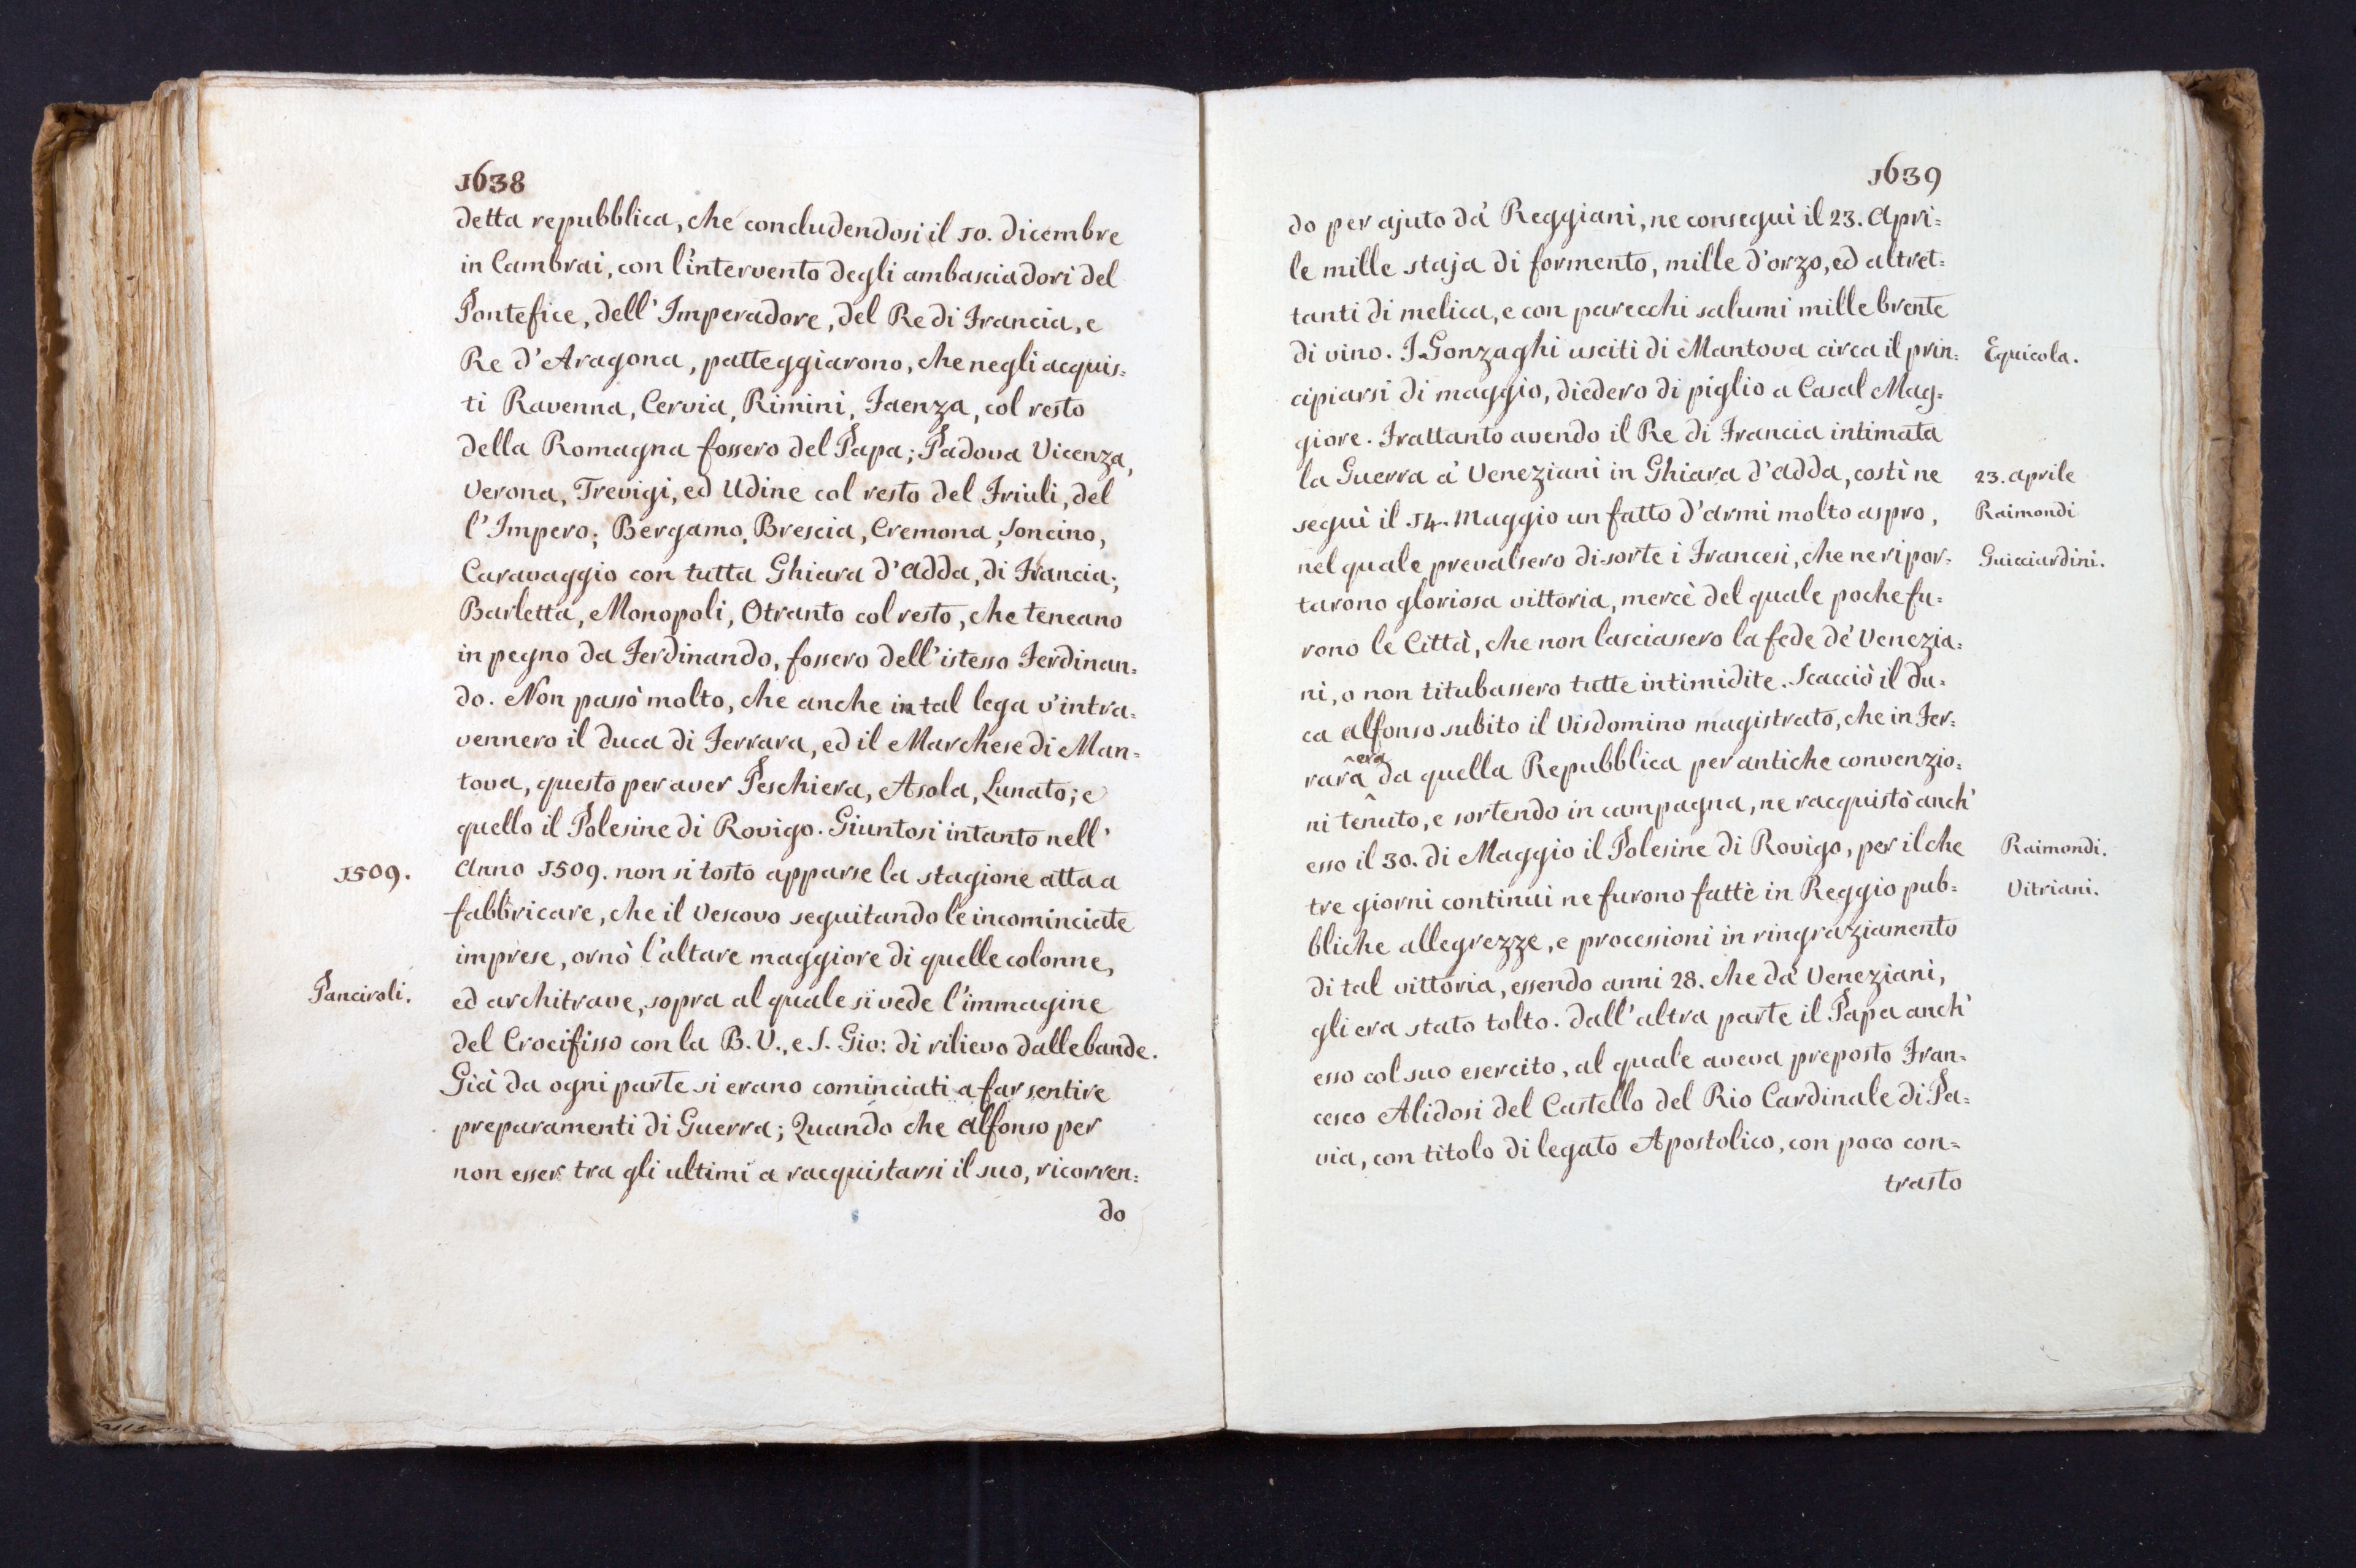 1638
detta repubblica, che concludendosi il 10. dicembre
in Cambrai, con l'intervento degli ambasciadori del
Pontefice, dell' Imperadore, del Re di Francia, e
Re d'Aragona, patteggiarono, che negli acquis=
ti Ravenna, Cervia, Rimini, Faenza, col resto
della Romagna fossero del Papa; Padova Vicenza,
Verona, Trevigi, ed Udine col resto del Friuli, del
l'Impero; Bergamo, Brescia, Cremona, Soncino,
Caravaggio con tutta Ghiara d'Adda, di Francia;
Barletta, Monopoli, Otranto col resto, che teneano
in pegno da Ferdinando, fossero dell'istesso Ferdinan=
do. Non passò molto, che anche in tal lega v'intra=
vennero il duca di Ferrara, ed il Marchese di Man=
tova, questo per aver Peschiera, Asola, Lunato; e
quello il Polesine di Rovigo. Giuntosi intanto nell'
1509.
Anno 1509. non si tosto apparse la stagione atta a
fabbricare, che il Vescovo seguitando le incominciate
imprese, ornò l'altare maggiore di quelle colonne,
Panciroli.
ed architrave, sopra al quale si vede l'immagine
del Crocifisso con la B.V., e S. Gio: di rilievo dalle bande.
Già da ogni parte si erano cominciati a far sentire
preparamenti di Guerra; Quando che Alfonso per
non esser tra gli ultimi a racquistarsi il suo, ricorren=
do
1639
do per ajuto dà Reggiani, ne conseguì il 23. Apri=
le mille staja di formento, mille d'orzo, ed altret=
tanti di melica, e con parecchi salumi mille brente
di vino. I Gonzaghi usciti di Mantova circa il prin=
Equicola.
cipiarsi di maggio, diedero di piglio a Casal Mag=
giore. Frattanto avendo il Re di Francia intimata
la Guerra a' Veneziani in Ghiara d'Adda, costì ne
23. aprile
seguì il 14. Maggio un fatto d'armi molto aspro,
Raimondi
nel quale prevalsero di sorte i Francesi, che ne ripor=
Guicciardini.
tarono gloriosa vittoria, mercè del quale poche fu=
rono le Città, che non lasciassero la fede de' Venezia=
ni, o non titubassero tutte intimidite. Scacciò il du=
ca Alfonso subito il Visdomino magistrato, che in Fer=
rara era da quella Repubblica per antiche convenzio=
ni tenuto, e sortendo in campagna, ne racquistò anch'
esso il 30. di Maggio il Polesine di Rovigo, per il che
Raimondi.
tre giorni continui ne furono fatte in Reggio pub=
Vitriani.
bliche allegrezze, e processioni in ringraziamento
di tal vittoria, essendo anni 28. che da' Veneziani,
gli era stato tolto. Dall'altra parte il Papa anch'
esso col suo esercito, al quale aveva preposto Fran=
cesco Alidosi del Castello del Rio Cardinale di Pa=
via, con titolo di legato Apostolico, con poco con=
trasto